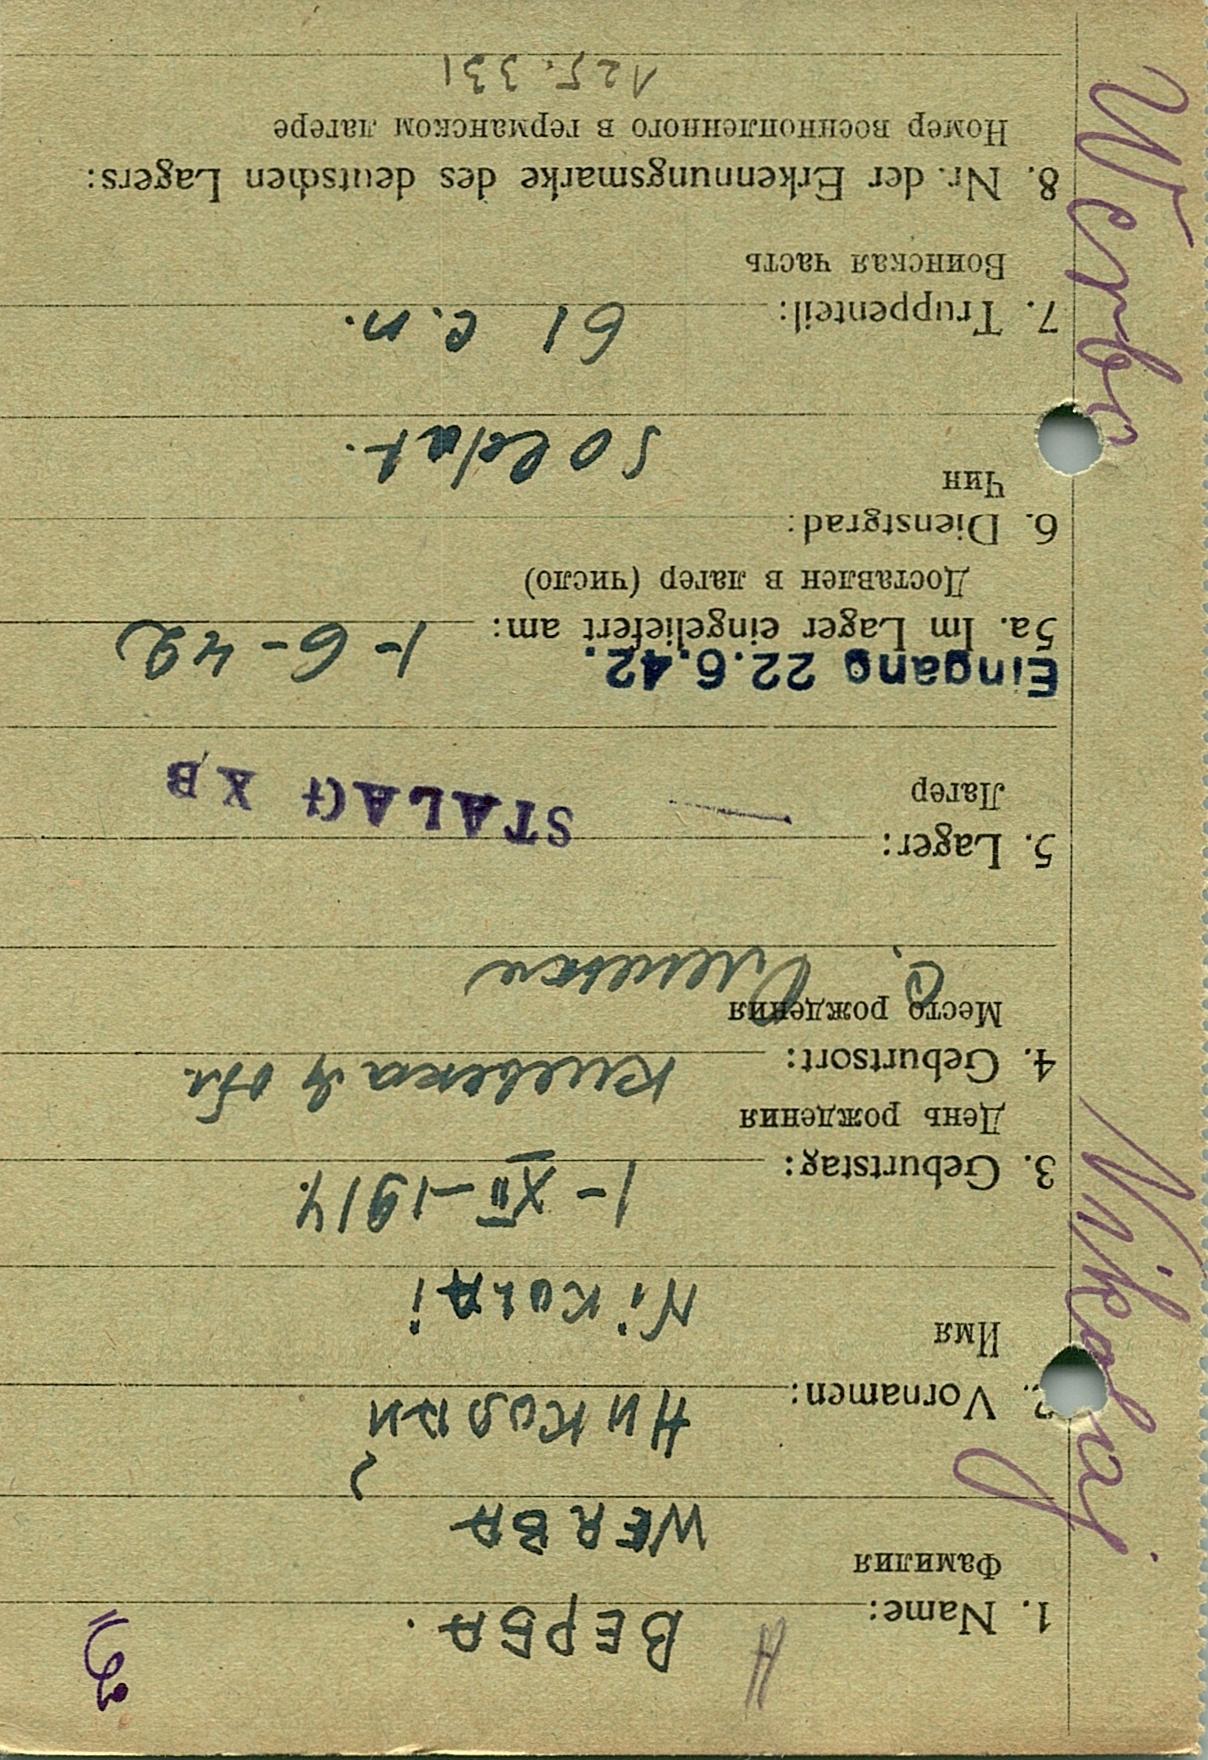 1. Name: ВЕРБА.
Фамилия
WERBA
2. Vornamen: Николай
Имя
NiKOLAi
3. Geburtstag: 1-XII-1914.
День рождения
4. Geburtsort: Киевская обл.
Место рождения
с.
5. Lager: STALAG XB
Лагер
Eingang 22.6.42.
5a. Im Lager eingeliefert am: 1-6-42
Доставлен в лагер (число)
6. Dienstgrad:
Чин
Soldat.
7. Truppenteil: 61 с.п.
Воинская часть
8. Nr. der Erkennungsmarke des deutschen Lagers:
Номер военнопленного в германском лагере
125.331
Nikolaj